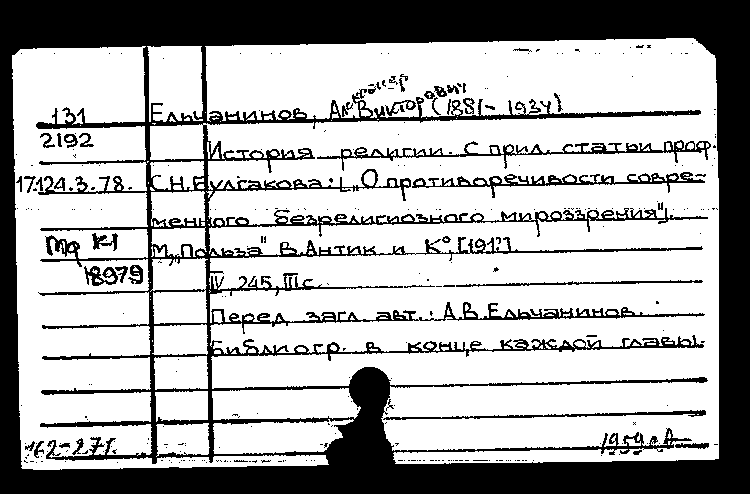 131 Ельчанинов, Александр Викторович (1881-1934)
2192
История религии. С прил. статьи проф.
17.124.3.78. С.Н.Булгакова: [„О противоречивости совре-
менного безрелигиозного мироззрения"].
Мф К1 М.,„Польза" В.Антик и К°, [191?].
18979
IV, 245, III с.
Перед загл. авт.: А.В.Ельчанинов.
Библиогр. в конце каждой главы.
162-27г. 1959